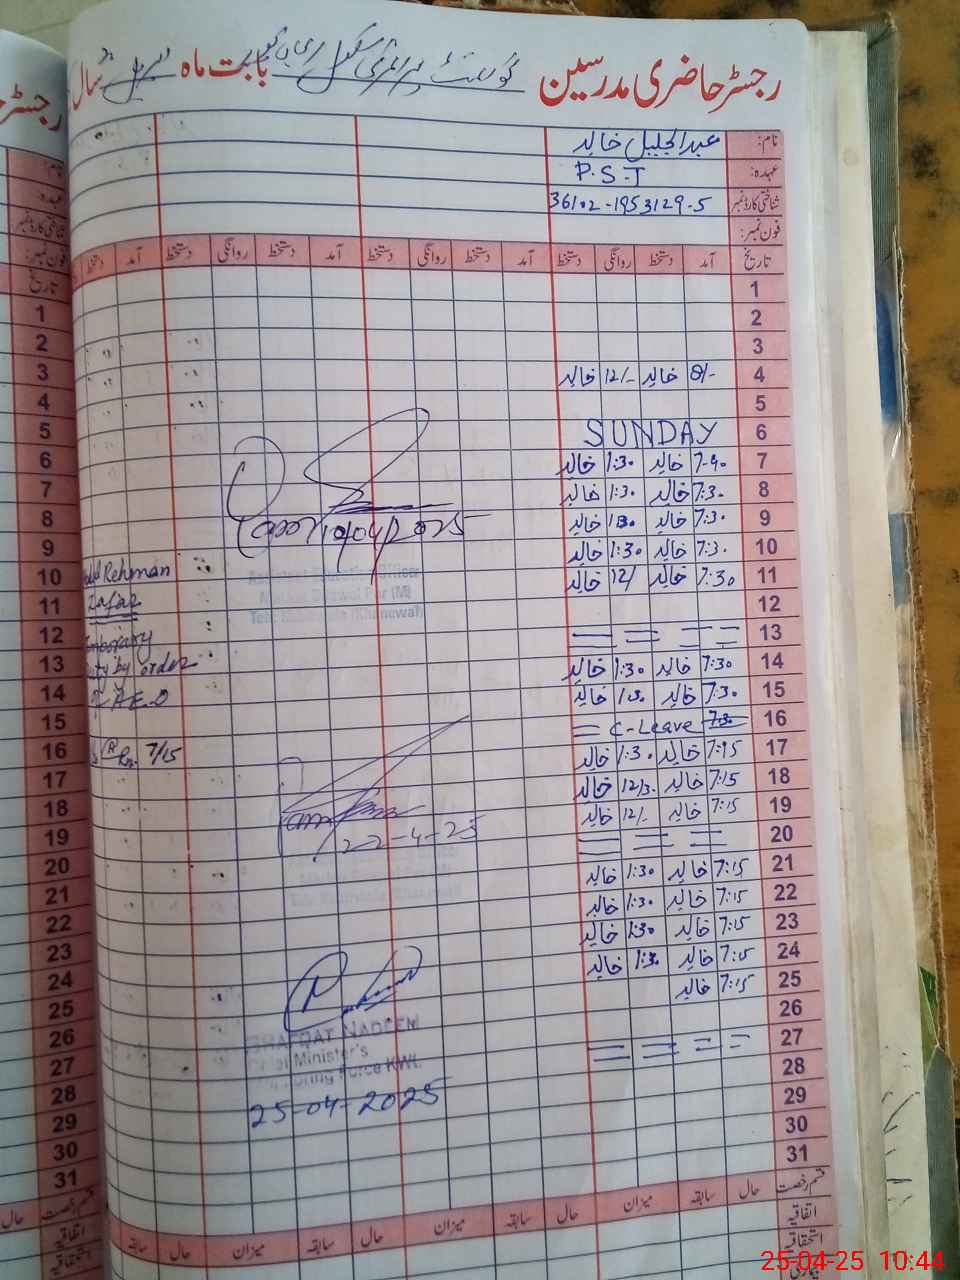 رجسٹر حاضری مدرسین گورنمنٹ پرائمری سکول بابت ماہ اپریل سال
نام: عبدالجلیل خالد
عہدہ: P.S.T
شناختی کارڈ نمبر 36102-1953129-5
فون نمبر:
تاریخ آمد دستخط روانگی دستخط آمد دستخط روانگی دستخط آمد دستخط روانگی دستخط آمد دستخط
1
2
3
4 8/- خالد 12/- خالد
5
6 SUNDAY
7 7-40 خالد 1:30 خالد
8 7:30 خالد 1:30 خالد
9 7:30 خالد 1:30 خالد
10 7:30 خالد 1:30 خالد
11 7:30 خالد 12/ خالد
12
13
14 7:30 خالد 1:30 خالد
15 7:30 خالد 1:30 خالد
16 7:30 C-Leave
17 7:15 خالد 1:30 خالد
18 7:15 خالد 12/30 خالد
19 7:15 خالد 12/- خالد
20
21 7:15 خالد 1:30 خالد
22 7:15 خالد 1:30 خالد
23 7:15 خالد 1:30 خالد
24 7:15 خالد 1:30 خالد
25 7:15 خالد
26
27
28
29
30
31
قسم رخصت حال سابقہ میزان حال سابقہ میزان حال سابقہ میزان حال سابقہ
اتفاقیہ
استحقاقیہ
بیماری
19/04/2025
Assistant Education Officer
Rehman
Zafar
Temporary
Duty by order
of A.E.O
7/15
22-4-25
SHAFQAT NADEEM
Chief Minister's
Monitoring Force KWL.
25-04-2025
رجسٹر
نام:
عہدہ
شناختی کارڈ نمبر
فون نمبر:
تاریخ
1
2
3
4
5
6
7
8
9
10
11
12
13
14
15
16
17
18
19
20
21
22
23
24
25
26
27
28
29
30
31
قسم رخصت حال
اتفاقیہ
استحقاقیہ
25-04-25 10:44